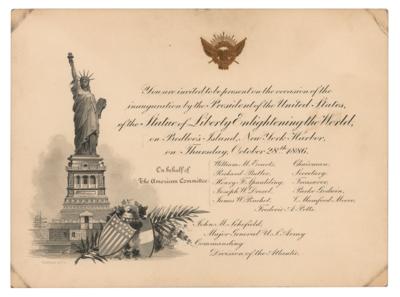 You are invited to be present on the occasion of the
inauguration by the President of the United States,
of the Statue of Liberty Enlightening the World,
on Bedloe's Island, New York Harbor,
on Thursday, October 28th 1886.
On behalf of
The American Committee
William M. Evarts, Chairman.
Richard Butler, Secretary.
Henry F. Spaulding, Treasurer.
Joseph W. Drexel, Parke Godwin,
James W. Pinchot, C. Mumford Moore,
Frederic A. Potts.
John M. Schofield,
Major General U.S. Army
Commanding
Division of the Atlantic.